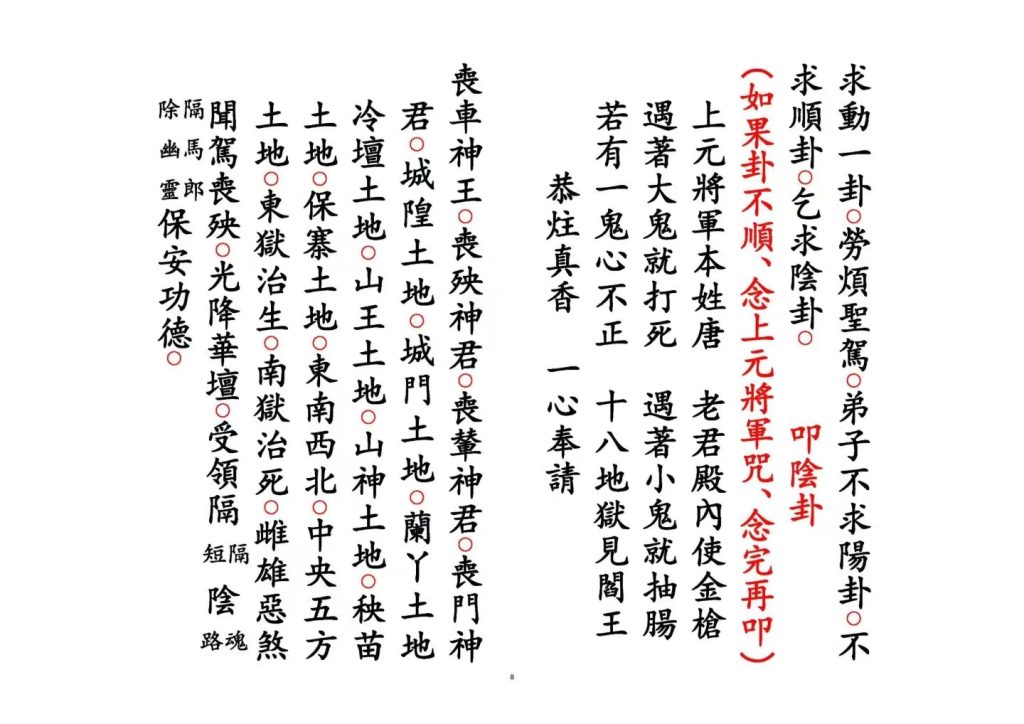 求動一卦○勞煩聖駕○弟子不求陽卦○不
求順卦○乞求陰卦○ 叩陰卦
（如果卦不順、念上元將軍咒、念完再叩）
上元將軍本姓唐 老君殿內使金槍
遇著大鬼就打死 遇著小鬼就抽腸
若有一鬼心不正 十八地獄見閻王
恭炷真香 一心奉請
喪車神王○喪殃神君○喪輦神君○喪門神
君○城隍土地○城門土地○蘭丫土地
冷壇土地○山王土地○山神土地○秧苗
土地○保寨土地○東南西北○中央五方
土地○東獄治生○南獄治死○雌雄惡煞
聞駕喪殃○光降華壇○受領隔 隔短 陰 魂路
隔馬郎
除幽靈
保安功德○
8